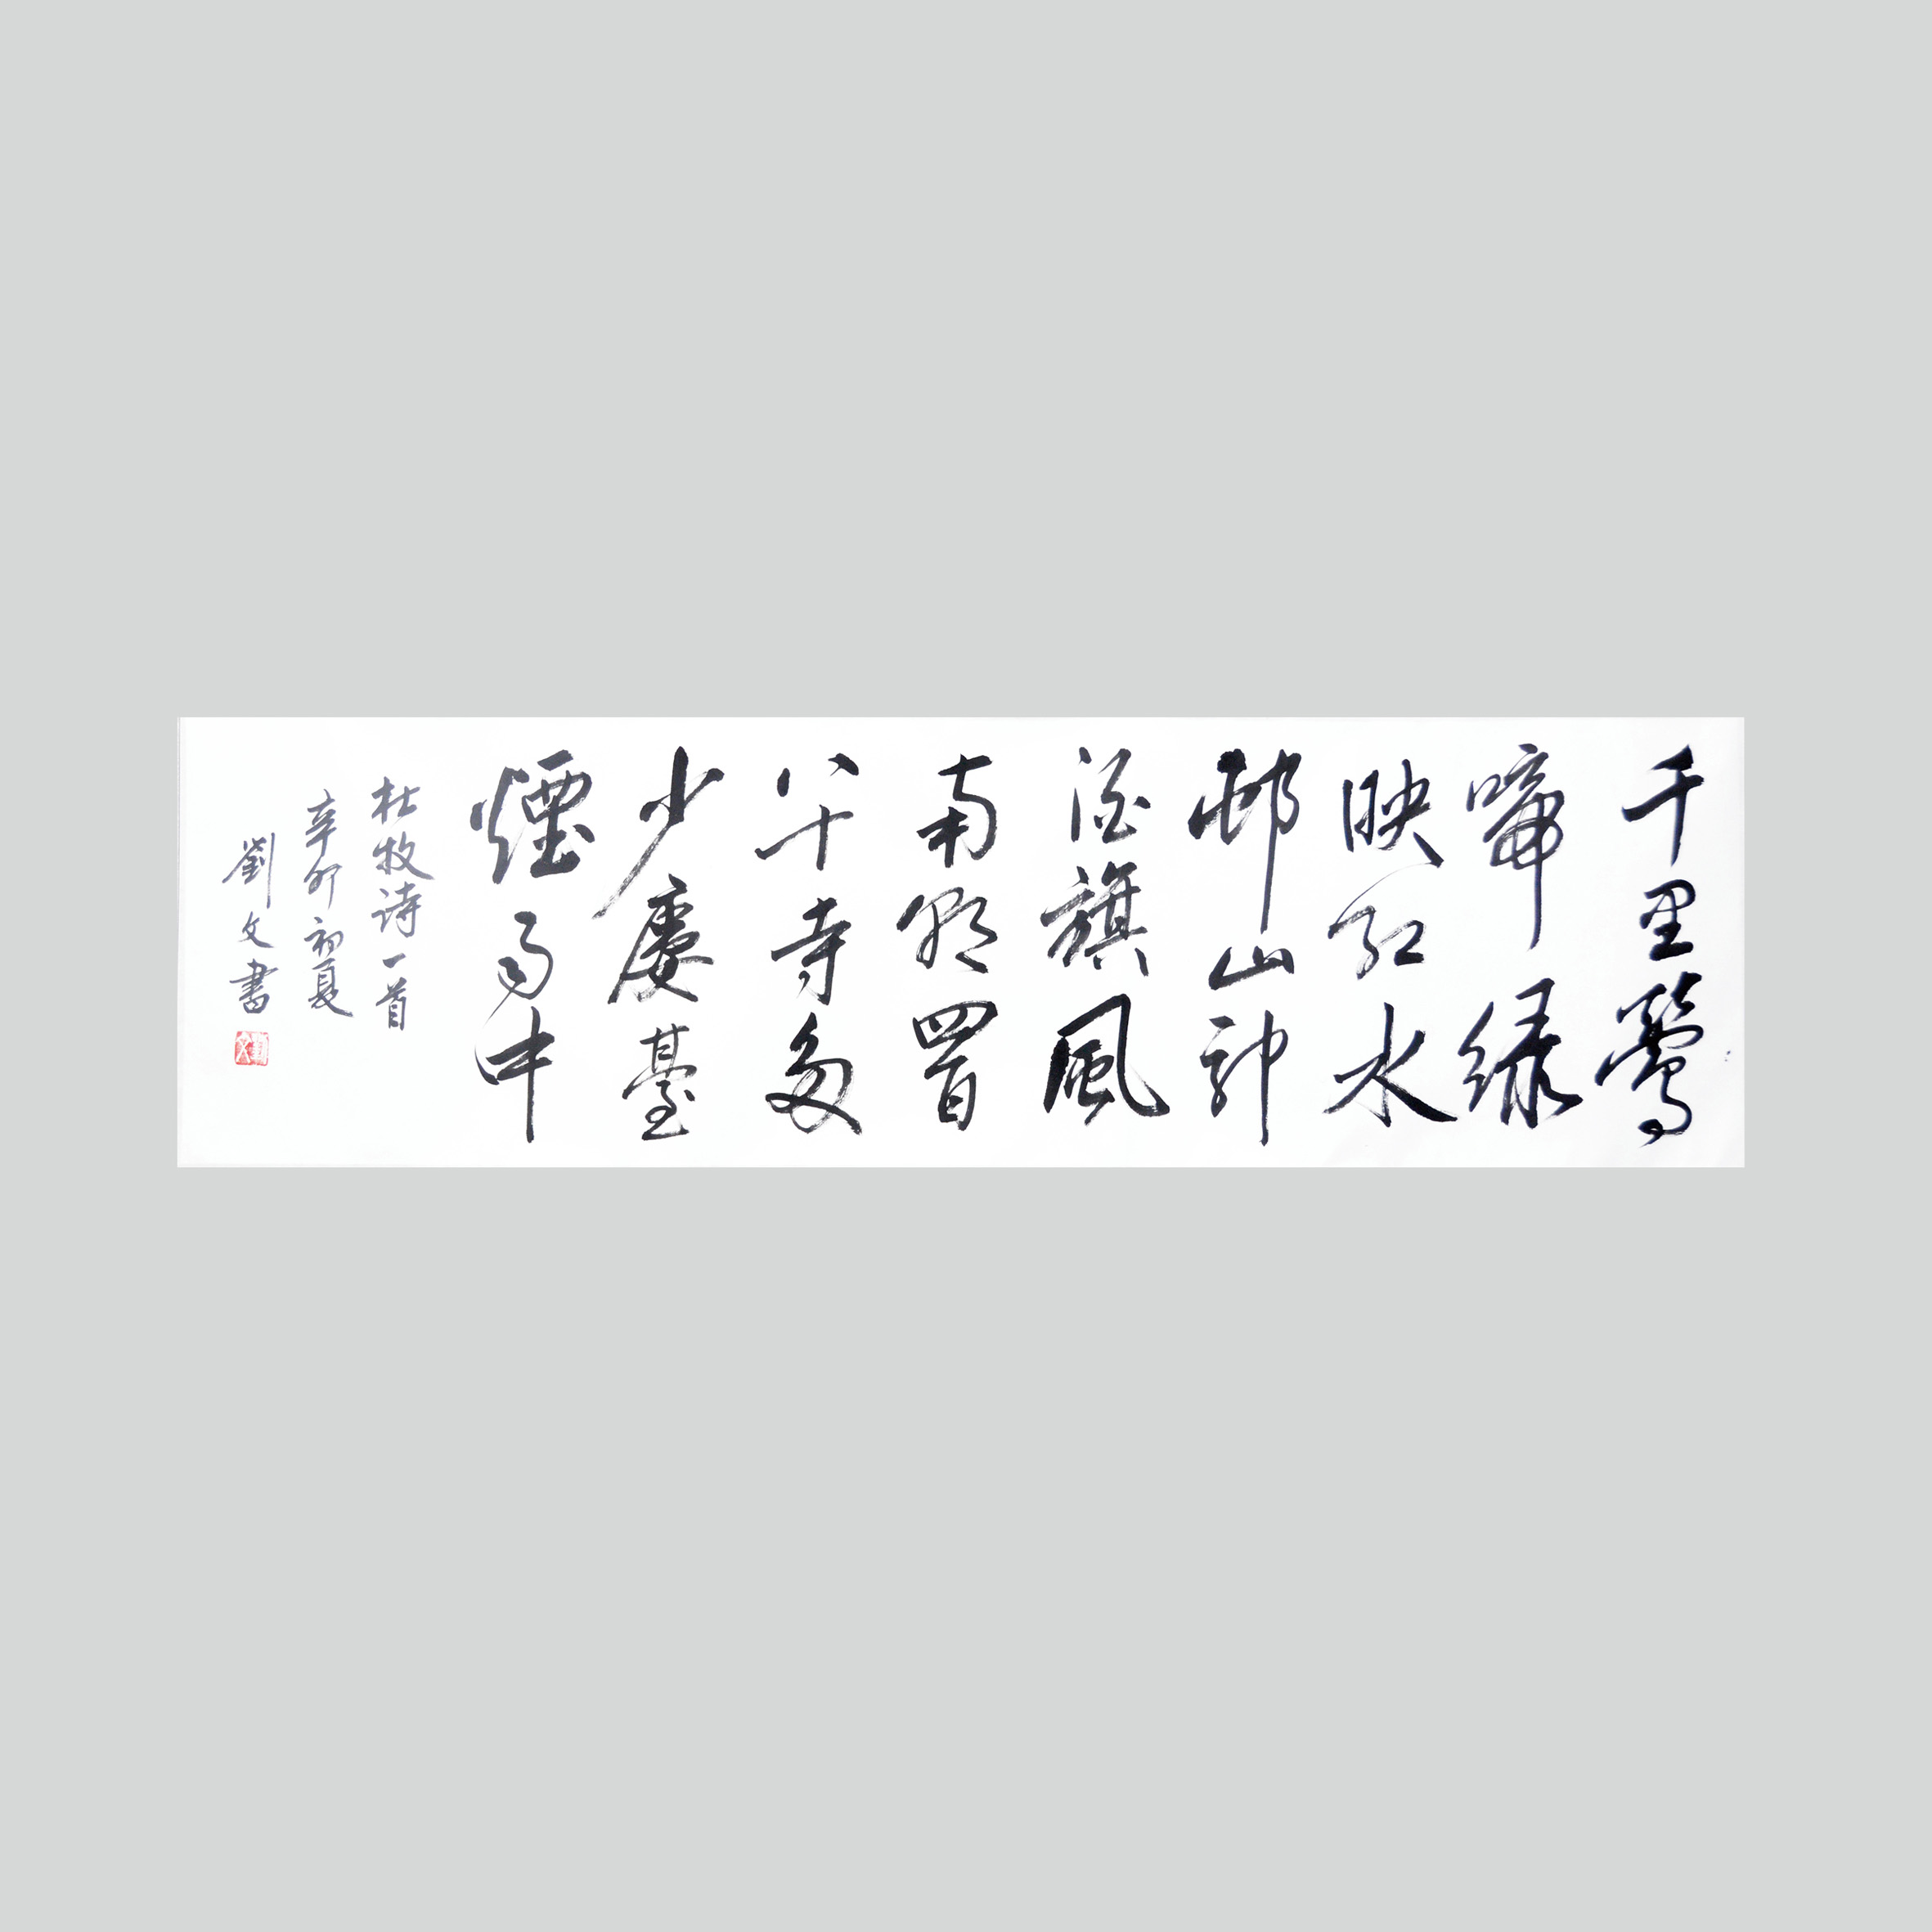 千里鶯
啼绿
映红水
邨山郭
酒旗風
南朝四百
八十寺多
少廔臺
煙雨中
杜牧诗一首
辛卯初夏
劉文書